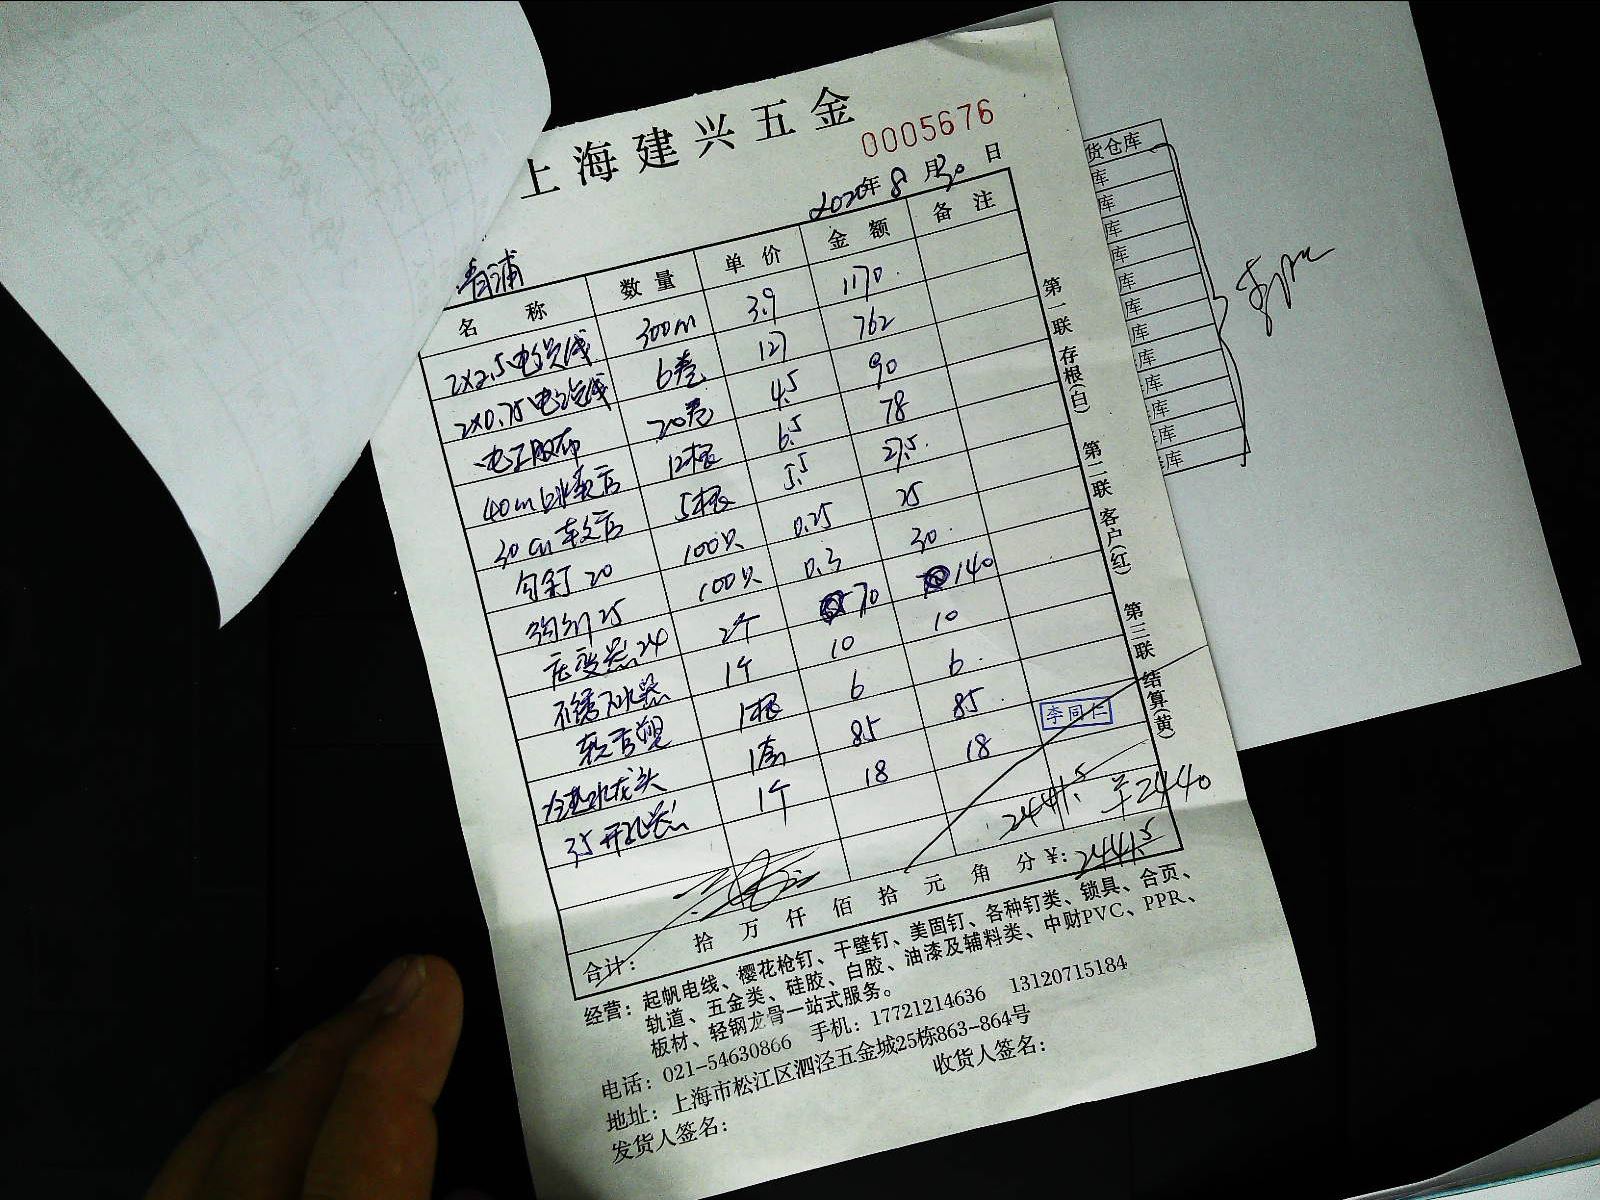 上海建兴五金
0005676
2020年8月30日
青浦
名称 数量 单价 金额 备注
2×2.5电源线 300m 3.9 1170
2×0.75电源线 6卷 127 762
电工胶布 20卷 4.5 90
40cm 12根 6.5 78
30cm软管 5根 5.5 27.5
勾钉20 100只 0.25 25
勾钉25 100只 0.3 30
24 2个 70 140
不锈下水器 1个 10 10
软管 1根 6 6
冷热水龙头 1套 85 85
35开孔器 1个 18 18
李同仁
2441.5 2440
合计: 拾 万 仟 佰 拾 元 角 分 ¥: 2441.5
经营: 起帆电线、樱花枪钉、干壁钉、美固钉、各种钉类、锁具、合页、
轨道、五金类、硅胶、白胶、油漆及辅料类、中财PVC、PPR、
板材、轻钢龙骨一站式服务。
电话: 021-54630866 手机: 17721214636 13120715184
地址: 上海市松江区泗泾五金城25栋863-864号
发货人签名: 收货人签名:
第一联 存根(白) 第二联 客户(红) 第三联 结算(黄)
货仓库
库
库
库
库
库
库
库
库
库
库
库
库